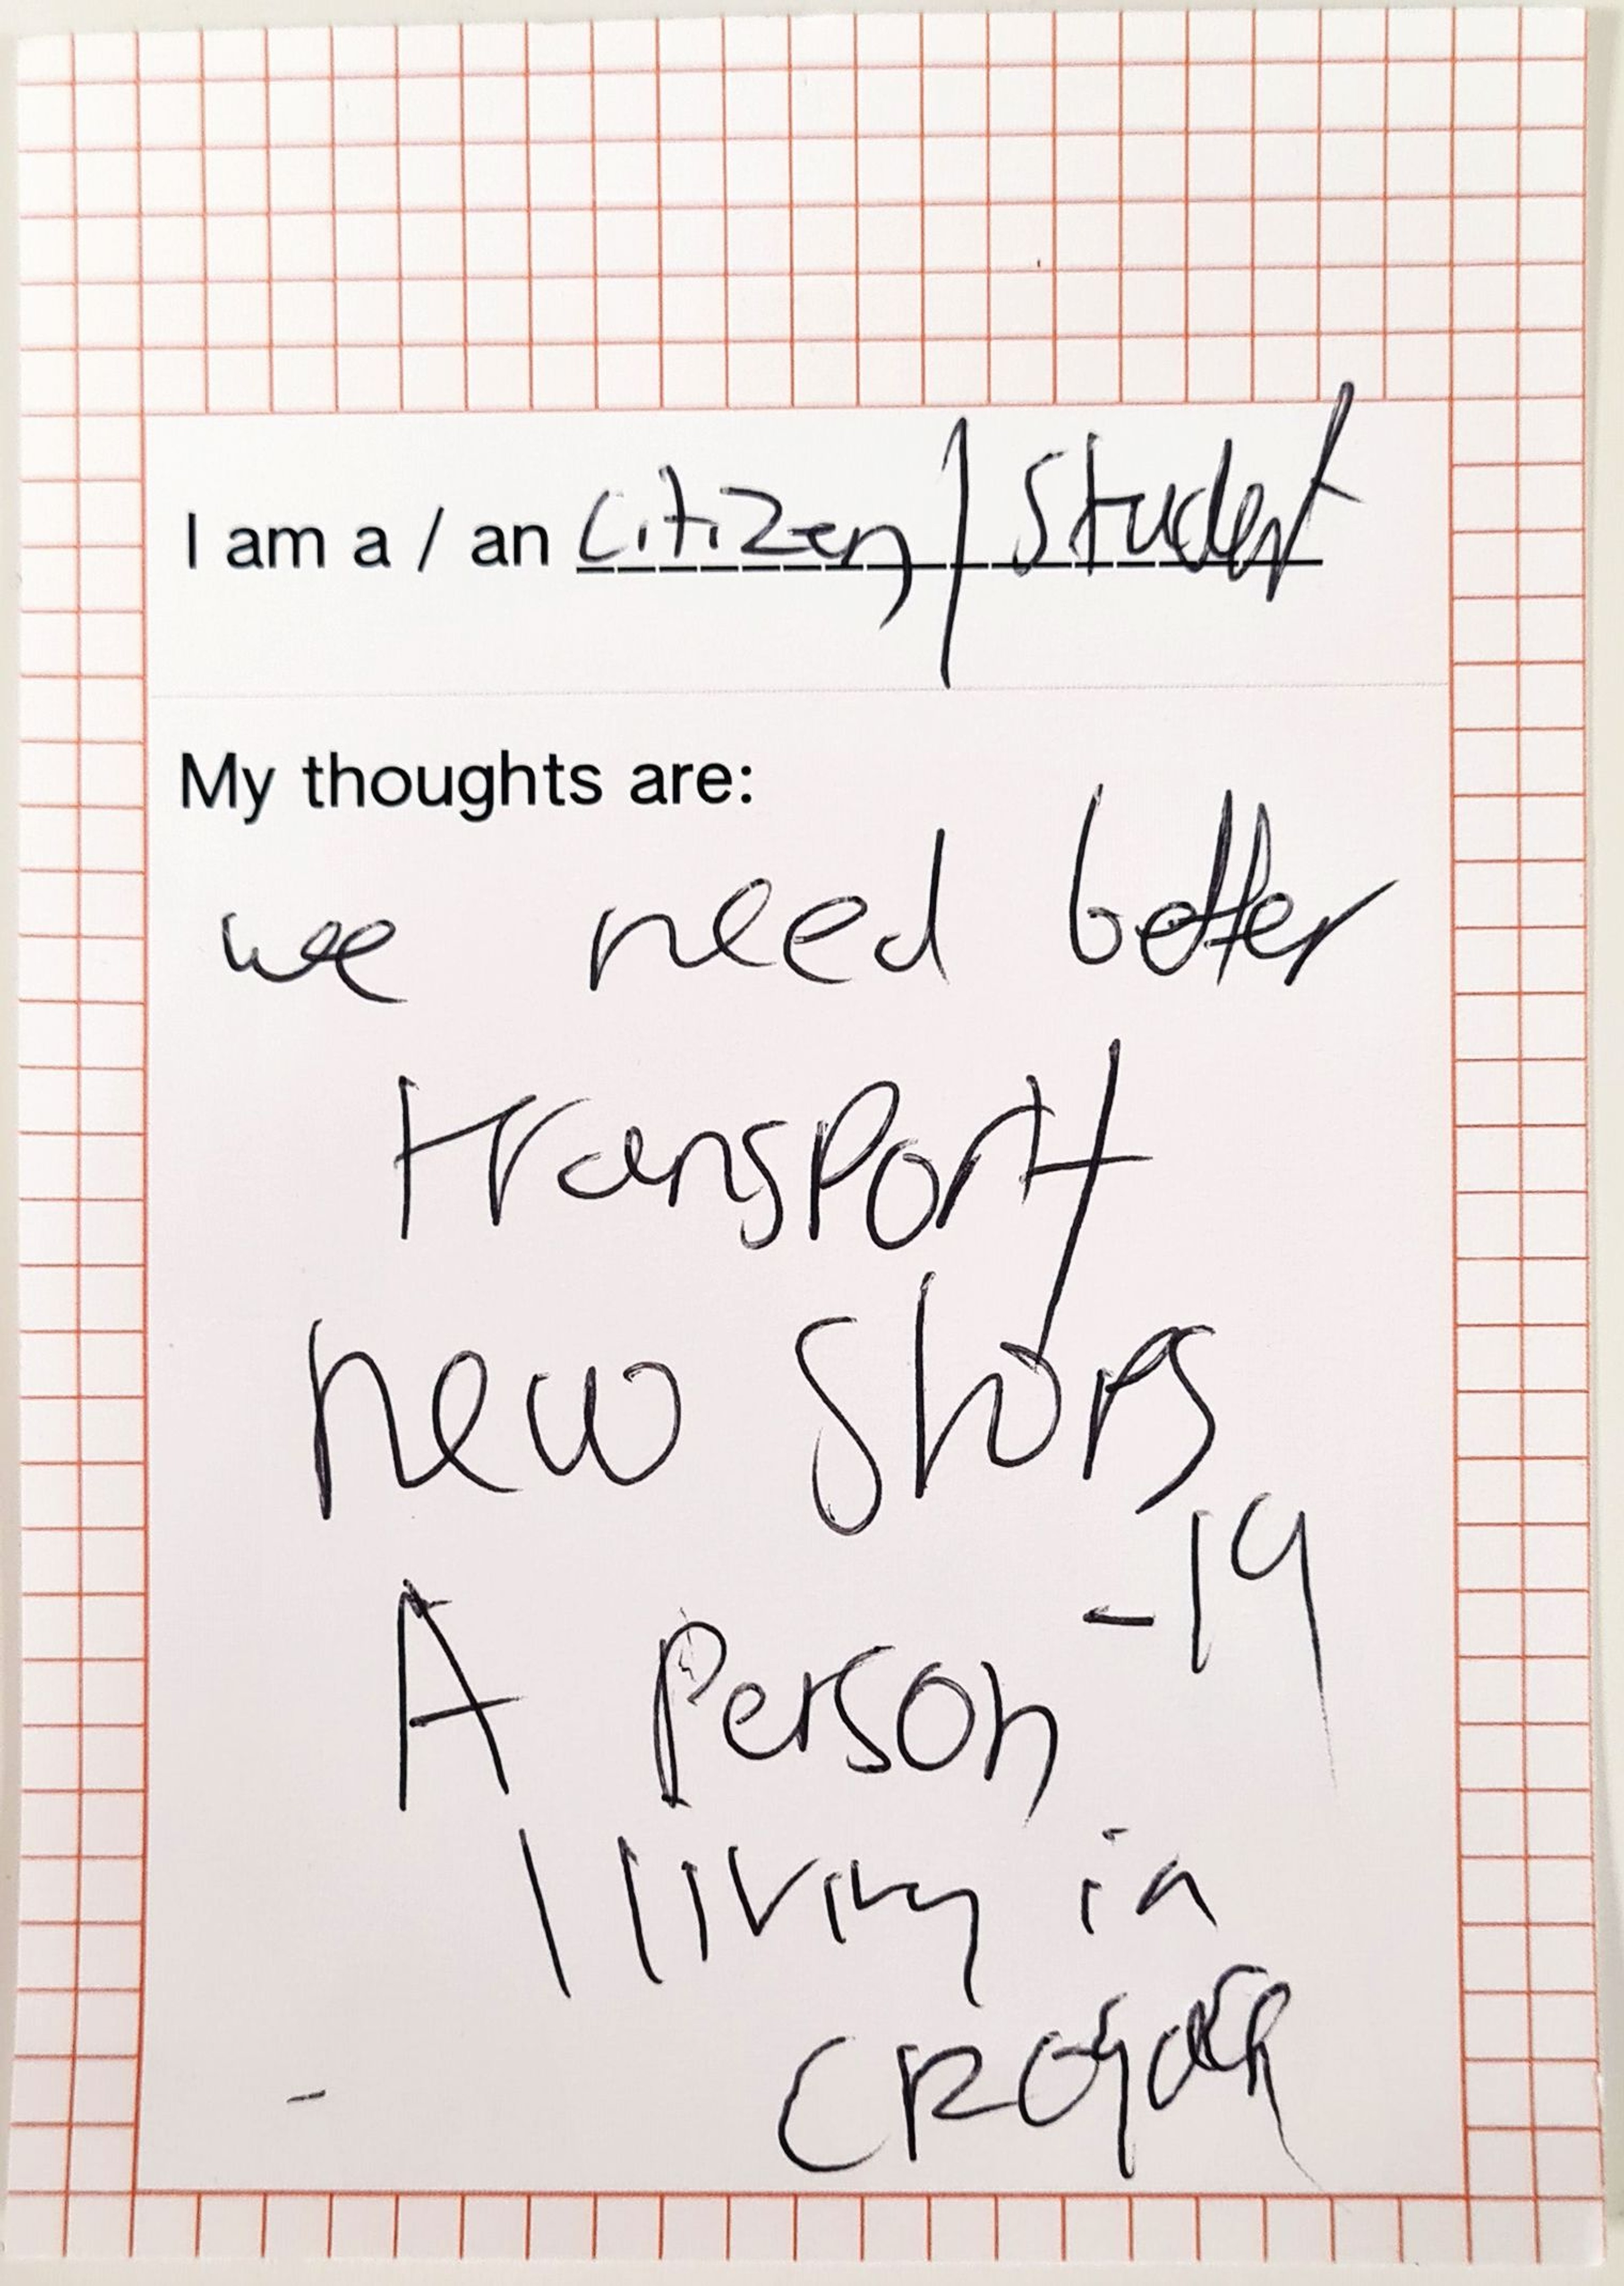 I am a / an citizen / student
My thoughts are:
we need better
transport
new shops
A person -19
living in
CROYDEN